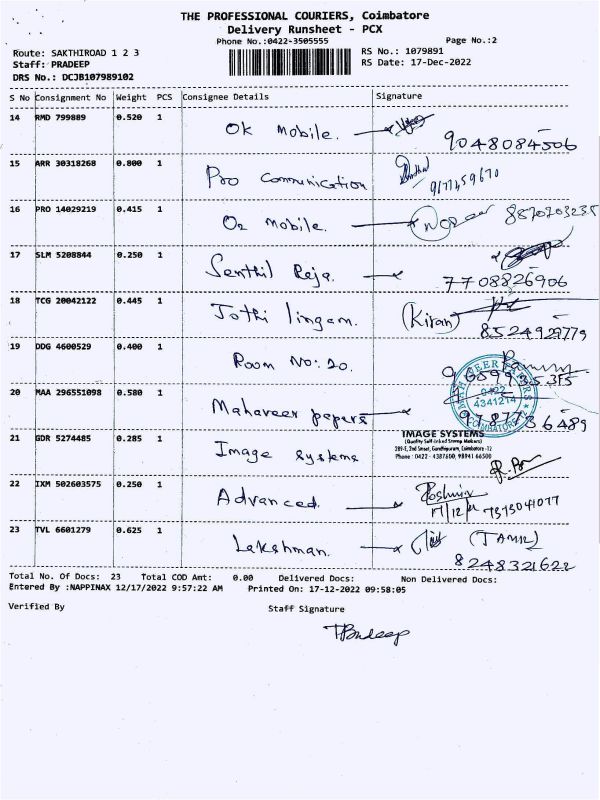 THE PROFESSIONAL COURIERS, Coimbatore
Delivery Runsheet - PCX
Phone No.:0422-3505555
Page No.:2
Route: SAKTHIROAD 1 2 3
RS No.: 1079891
Staff: PRADEEP
RS Date: 17-Dec-2022
DRS No.: DCJB107989102
S No Consignment No Weight PCS Consignee Details Signature
14 RMD 799889 0.520 1 Ok Mobile.
9048084506
15 ARR 30318268 0.800 1 Pro Communication
9177459670
16 PRO 14029219 0.415 1 O2 Mobile.
17 SLM 5208844 0.250 1 Senthil Reja.
7708826906
18 TCG 20042122 0.445 1 Jothi lingam. (Kiran)
8524929779
19 DDG 4600529 0.400 1 Room No: 20.
20 MAA 296551098 0.580 1 Mahaveer papers
0422
4341214
COIMBATORE
IMAGE SYSTEMS
(Quality Self-Inked Stamp Makers)
289-E, 2nd Street, Gandhipuram, Coimbatore -12
Phone : 0422 - 4387600, 98941 66500
21 GDR 5274485 0.285 1 Image Systems
22 IXM 502603575 0.250 1 Advanced.
17/12/22 7373041077
23 TVL 6601279 0.625 1 Lakshman. (TAMIL)
8248321622
Total No. Of Docs: 23 Total COD Amt: 0.00 Delivered Docs: Non Delivered Docs:
Entered By :NAPPINAX 12/17/2022 9:57:22 AM Printed On: 17-12-2022 09:58:05
Verified By Staff Signature